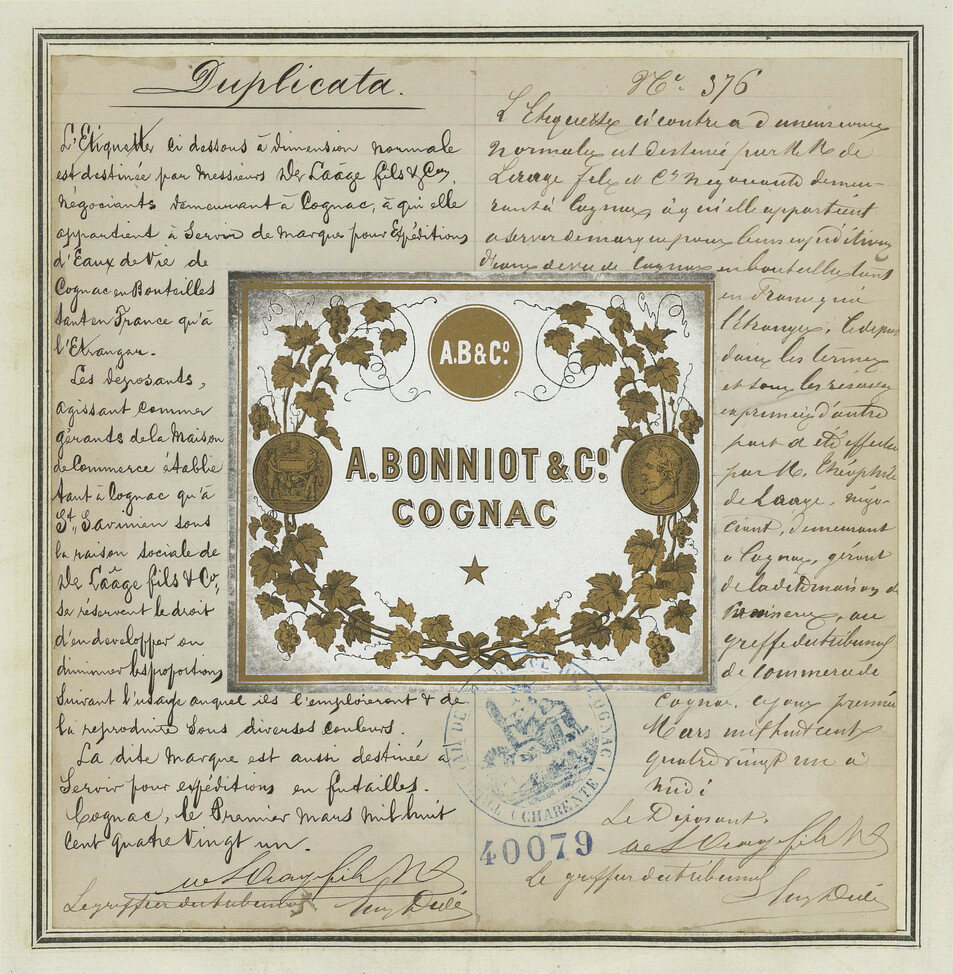 Duplicata.
L'Etiquette ci dessous à dimension normale
est destinée par Messieurs De Laâge fils & Co,
négociants demeurant à Cognac, à qui elle
appartient à Servir de Marque pour Expéditions
d'Eaux de Vie de
Cognac en Bouteilles
tant en France qu'à
l'Etranger.
Les déposants,
agissant comme
gérants de la Maison
de Commerce établie
tant à Cognac qu'à
St. Savinien sous
la raison sociale de
De Laâge fils & Co,
se réservent le droit
d'en developper ou
diminuer les proportions
Suivant l'usage auquel ils l'emploieront & de
la reproduire Sous diverses couleurs.
La dite Marque est aussi destinée à
Servir pour expéditions en futailles.
Cognac, le Premier Mars Mil huit
Cent quatre Vingt un.
Le greffier du tribunal
A.B&Co.
A. BONNIOT & Co.
COGNAC
No. 376
L'Etiquette ci contre a dimension
normale est destinée par M.M. de
Laage fils et Cie Négociants demeu-
rant à Cognac, à qui elle appartient
a servir de marque pour leurs expéditions
d'eaux de vie de Cognac en bouteilles tant
en France qu'à
l'étranger. Le dépot
dans les termes
et sous les réserves
exprimées d'autre
part a été effectué
par M. Théophile
de Laage, négo-
ciant, demeurant
à Cognac, gérant
de la dite maison de
Commerce, au
greffe du tribunal
de commerce de
Cognac, ce jour premier
Mars mil huit cent
quatre vingt un à
midi
Le Déposant.
Le greffier du tribunal
COGNAC
CHARENTE
40079